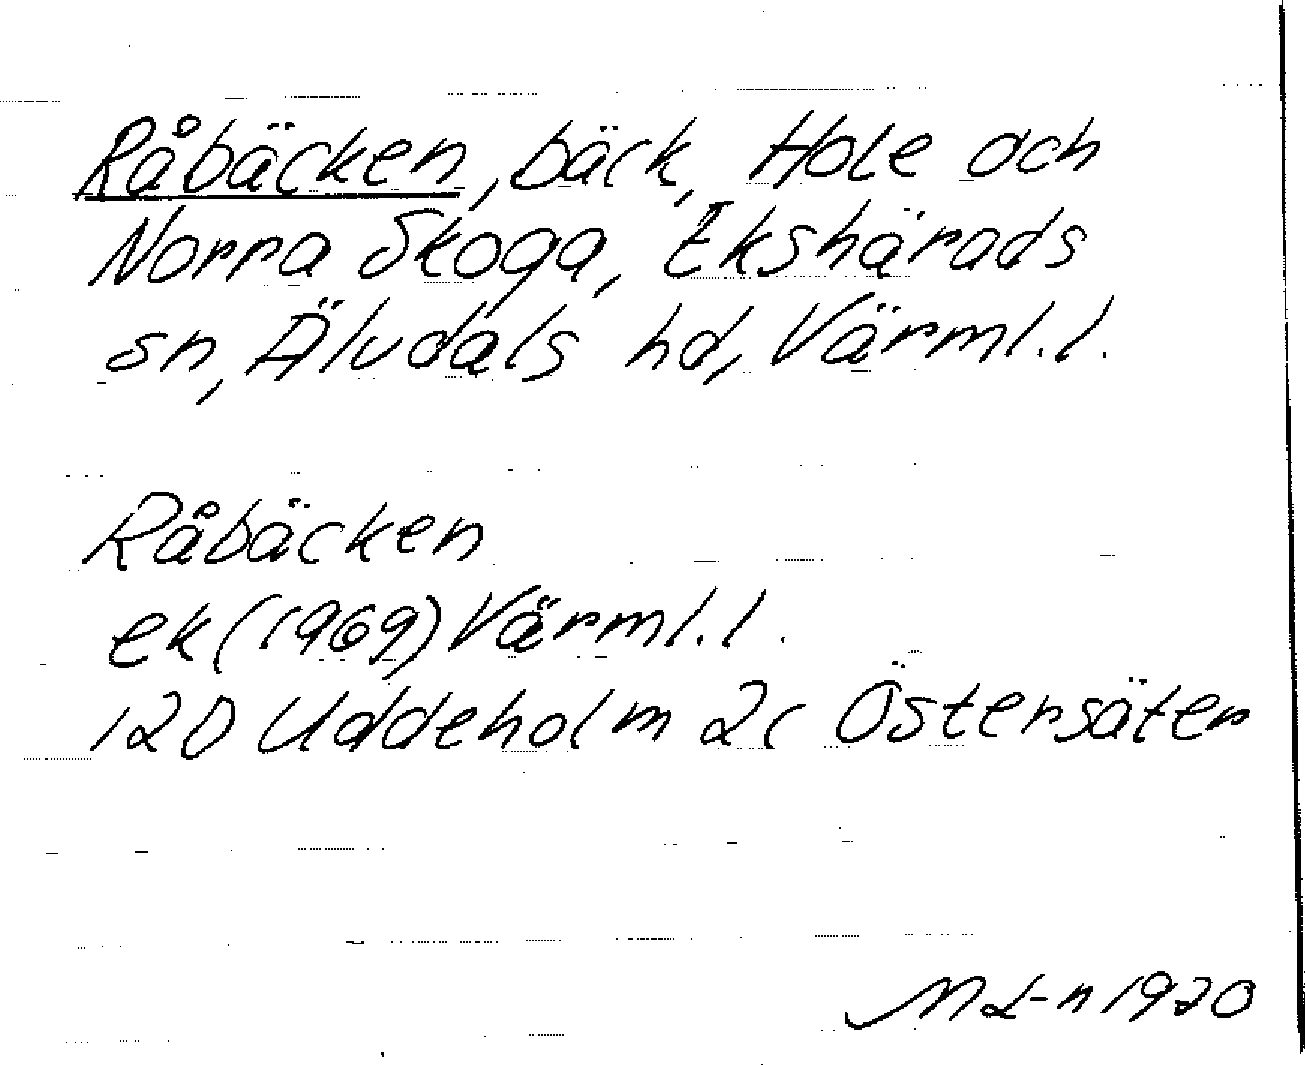 Råbäcken, bäck, Hole och
Norra Skoga, Ekshärads
sn, Älvdals hd, Värml.l.
Råbäcken
ek (1969) Värml.l.
12D Uddeholm 2c Östersäter
ML-n 1970